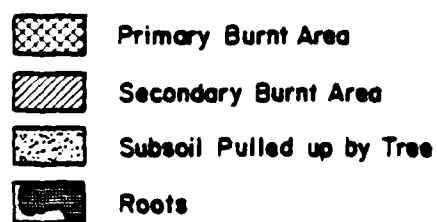 Primary Burnt Area
Secondary Burnt Area
Subsoil Pulled up by Tree
Roots